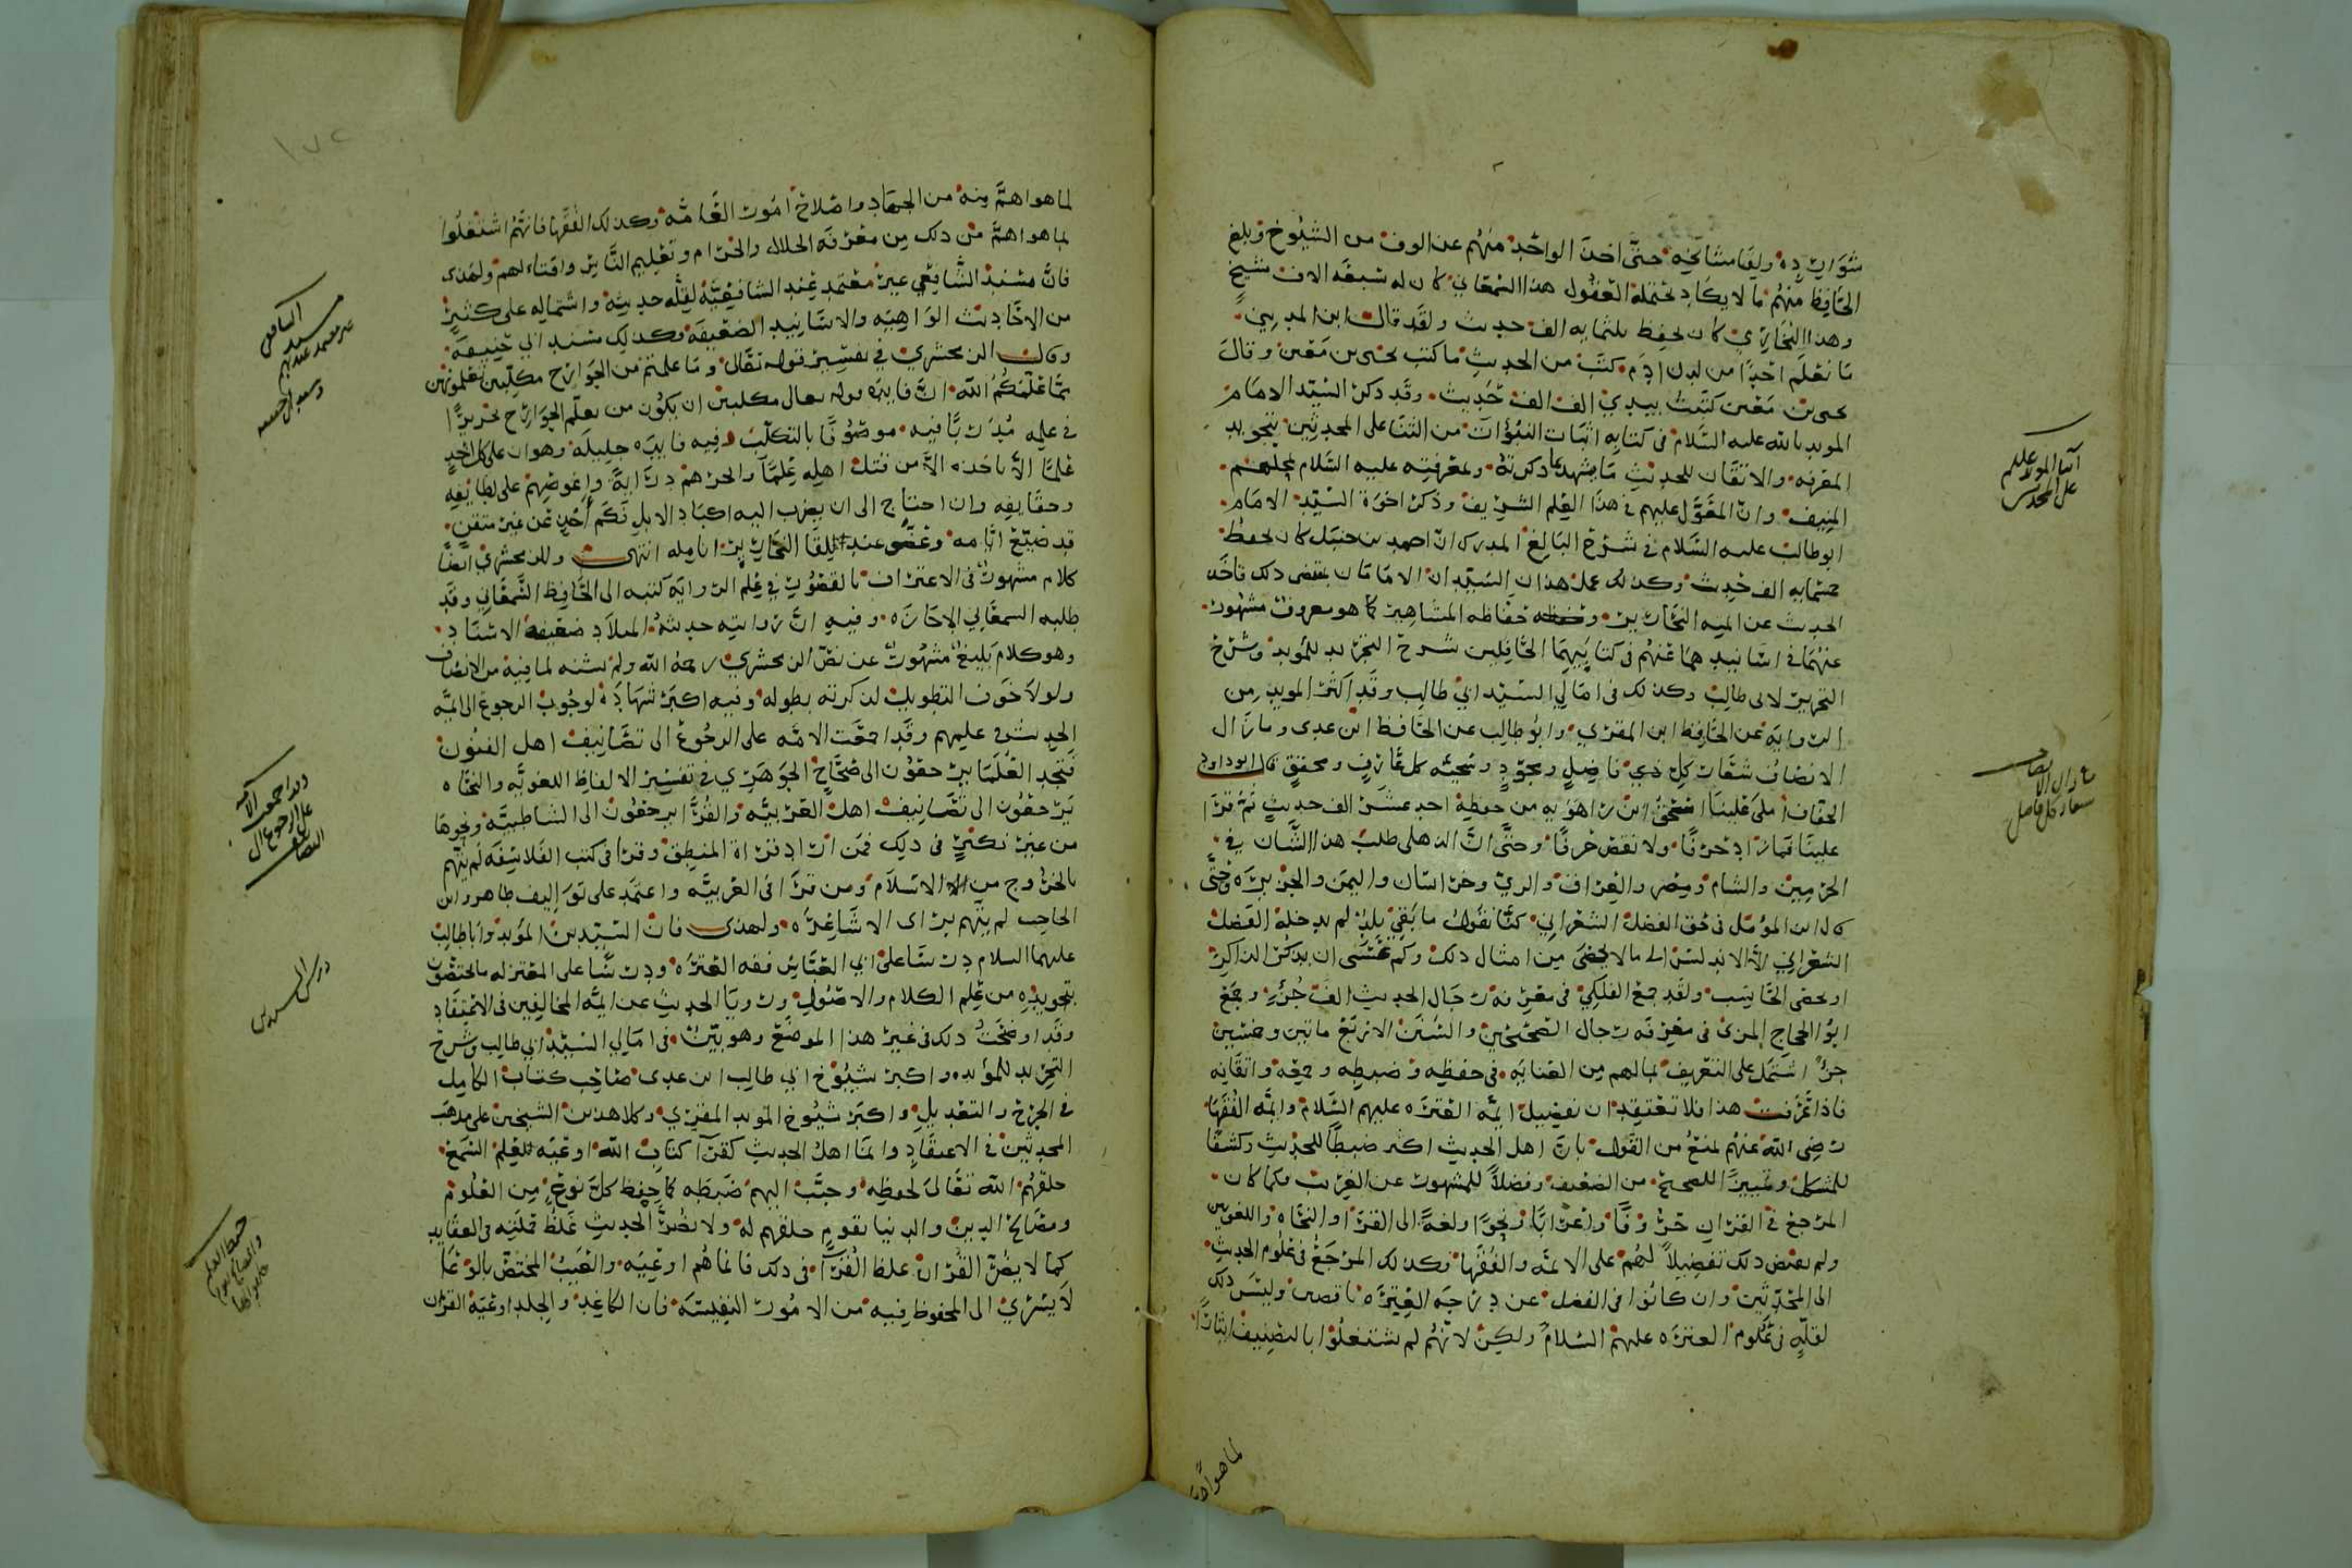 شوارده ولقا مشائخه حتى اخذ الواحد منهم عن الوف من الشيوخ وبلغ
الحافظ منهم ما لا يكاد تحتمله العقول هذا السمعاني كان له سبعة الاف شيخ
وهذا البخاري كان يحفظ ثلثمايه الف حديث ولقد قال ابن المديني
ما نعلم احدا من لدن ادم كتب من الحديث ما كتب يحيى بن معين وقال
يحيى بن معين كتبت بيدي الف الف حديث وقد ذكر السيد الامام
المويد بالله عليه السلام في كتابه اثبات النبوات من الثنا على المحدثين بتجويد
المعرفه والاتقان للحديث ما يشهد بما ذكرته ومعرفته عليه السلام بمحلهم
المنيف وان المعول عليهم في هذا العلم الشريف وذكر اخوه السيد الامام
ابو طالب عليه السلام في شرح البالغ المدرك ان احمد بن حنبل كان يحفظ
خمسمايه الف حديث وكذلك عمل هذان السيدان الامامان يقتضي ذلك فاخذا
الحديث عن ايمه النحارير وحفاظه المشاهير كما هو معروف مشهور
عنهما في اسانيدهما عنهم في كتابيهما الحافلين شرح التجريد للمويد وشرح
التحرير لابي طالب وكذلك في امالي السيد ابي طالب وقد اكثر المويد من
الروايه عن الحافظ ابن المقري وابو طالب عن الحافظ ابن عدي وما زال
الانصاف شعار كل ذي فاضل ومجود وسجيه كل عارف ومحقق قال ابو داود
الخفاف املى علينا اسحق ابن راهويه من حفظه احد عشر الف حديث ثم قرا
علينا فما زاد حرفا ولا نقص حرفا وحتى ان الذهلي طلب هذا الشان في
الحرمين والشام ومصر والعراق والري وخراسان واليمن والجزيره وحتى
قال ابن المومل في حق الفضل الشعراني كنا نقول ما بقي بلد لم يدخله الفضل
الشعراني الا الاندلس الى ما لا يحصى من امثال ذلك وكم عسى ان يذكر الذاكر
او يحصي الحاسب ولقد جمع الفلكي في معرفه رجال الحديث الف جزء وجمع
ابو الحجاج المزي في معرفه رجال الصحيحين والسنن الاربع ماتين وخمسين
جزا اشتمل على التعريف بما لهم من العنايه في حفظه وضبطه وجمعه واتقانه
فاذا عرفت هذا فلا تعتقد ان تفضيل ايمه العتره عليهم السلام وايمه الفقها
رضي الله عنهم يمنع من القول بان اهل الحديث اكثر ضبطا للحديث وكشفا
للمشكل وتمييزا للصحيح من الضعيف وفضلا للمشهور عن الغريب وكما كان
المرجع في القران حروفا واعرابا ونحوا ولغة الى القرا والنحاه واللغويين
ولم يقتض ذلك تفضيلا لهم على الائمه والفقها فكذلك المرجع في علوم الحديث
الى المحدثين وان كانوا في الفضل عن درجه العتره ناقصين وليس ذلك
لقله في علوم العتره عليهم السلام ولكن لانهم لم يشتغلوا بالتصنيف ايثارا
لما هو اهم
اثنا المويد عليلم
على المحدثين
ما زال الانصاف
شعار كل فاضل
لما هو اهم منه من الجهاد واصلاح امور العامه وكذلك الفقها فانهم اشتغلوا
بما هو اهم من ذلك من معرفه الحلال والحرام وتعليم الناس وافتاءهم ولهذا
فان مسند الشافعي غير معتمد عند الشافعيه لقله حديثه واشتماله على كثير
من الاحاديث الواهيه والاسانيد الضعيفه وكذلك مسند ابي حنيفه
وقال الزمخشري في تفسير قوله تعالى وما علمتم من الجوارح مكلبين تعلمونهن
مما علمكم الله ان فايده قوله تعالى مكلبين ان يكون من يعلم الجوارح نحريرا
في علمه مدربا فيه موصوفا بالتكليب وفيه فايده جليله وهو ان على كل اخذ
علما الا ياخذه الا من قتل اهله علما وانحرهم درايه واغوصهم على لطايفه
وحقايقه وان احتاج الى ان يضرب اليه اكباد الابل فكم اخذ عن غير متقن
قد ضيع ايامه وعض عند لقا النحارير انامله انتهى وللزمخشري ايضا
كلام مشهور في الاعتراف بالقصور في علم الروايه كتبه الى الحافظ السمعاني وقد
طلبه السمعاني الاجازه وفيه ان روايته حديثه الميلاد ضعيفه الاسناد
وهو كلام بليغ مشهور عن نص الزمخشري رحمه الله ولم يشنه لما فيه من الانصاف
ولولا خوف التطويل لذكرته بطوله وفيه اكبر شهاده لوجوب الرجوع الى ايمه
الحديث عليهم وقد اجمعت الامه على الرجوع الى تصانيف اهل الفنون
فتجد العلما يرجعون الى صحاح الجوهري في تفسير الالفاظ اللغويه والنحاه
يرجعون الى تصانيف اهل العربيه والقرا يرجعون الى الشاطبيه ونحوها
من غير نكير في ذلك فمن اراد قراة المنطق وقرا في كتب الفلاسفه لم يتهم
بالخروج من الاسلام ومن قرا في العربيه واعتمد على تواليف طاهر وابن
الحاجب لم يتهم براي الاشاعره ولهذا فان السيدين المويد وابا طالب
عليهما السلام درسا على ابي العباس فقه العتره ودرسا على المعتزله ما يختصون
بتجويده من علم الكلام والاصول ورويا الحديث عن ايمه المخالفين في الاعتقاد
وقد اوضحت ذلك في غير هذا الموضع وهو بين في امالي السيد ابي طالب وشرح
التجريد للمويد واكبر شيوخ ابي طالب ابن عدي صاحب كتاب الكامل
في الجرح والتعديل واكبر شيوخ المويد المقري وكلا هذين الشيخين على مذهب
المحدثين في الاعتقاد وانما اهل الحديث كقرا كتاب الله اوعيه لعلم السمع
خلقهم الله تعالى لحفظه وحبب اليهم ضبطه كما حفظ كل نوع من العلوم
ومصالح الدين والدنيا بقوم خلقهم له ولا يضر الحديث غلط حملته في العقايد
كما لا يضر القران غلط القرا في ذلك فانما هم اوعيه والعيب المختص بالوعا
لا يسري الى المحفوظ فيه من الامور النفيسه فان الكاغد والجلد اوعيه القران
مسند الشافعي
غير معتمد عندهم
وقد اجمعت الامه
على الرجوع الى